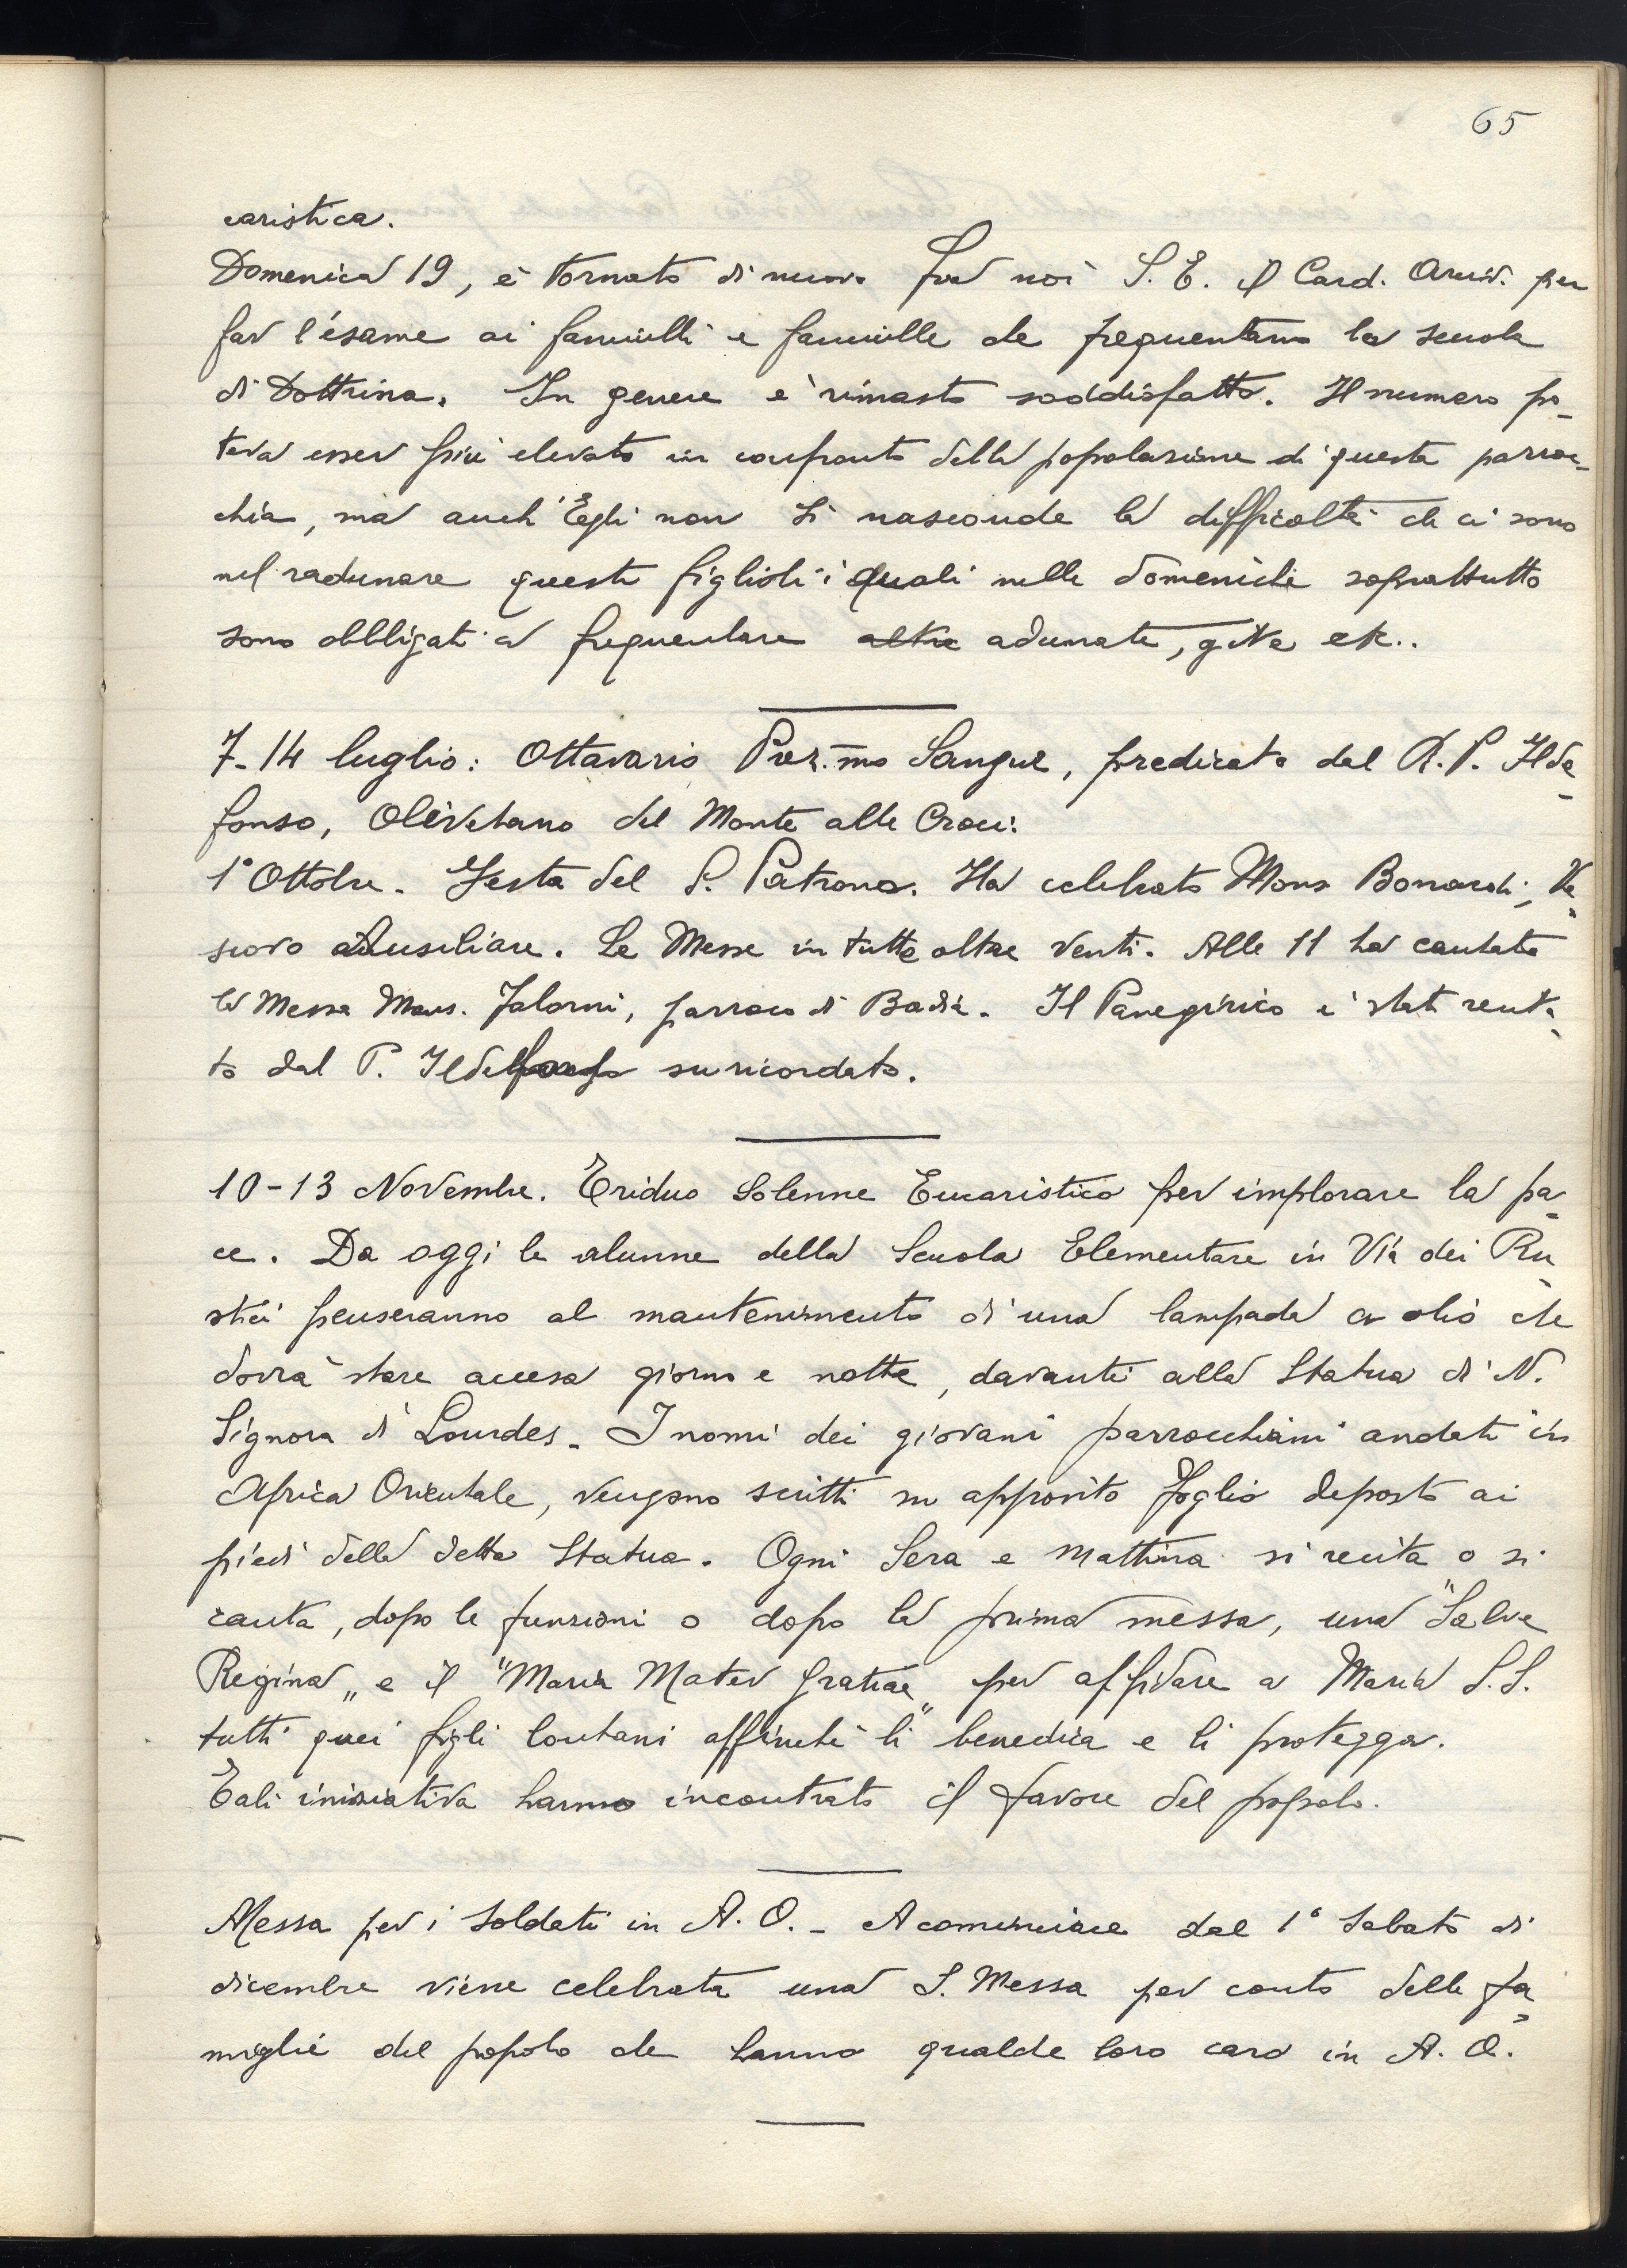 65
caristica.
Domenica 19, è tornato di nuovo fra noi S. E. il Card. Arciv. per
far l'esame ai fanciulli e fanciulle che frequentano la scuola
di Dottrina. In genere è rimasto soddisfatto. Il numero po-
teva esser più elevato in confronto della popolazione di questa parroc-
chia, ma anch'Egli non si nasconde la difficoltà che ci sono
nel radunare questi figlioli i quali nelle domeniche soprattutto
sono obbligati a frequentare altre adunate, gite etc..
7-14 luglio: Ottavario Prez.mo Sangue, predicato dal R. P. Ilde-
fonso, Olivetano del Monte alle Croci:
1° Ottobre. Festa del S. Patrono. Ha celebrato Mons Bonardi, Ve-
scovo Ausiliare. Le Messe in tutto oltre venti. Alle 11 ha cantato
la Messa Mons. Falorni, parroco di Badia. Il Panegirico è stato reci-
to dal P. Ildefonso su ricordato.
10-13 Novembre. Triduo Solenne Eucaristico per implorare la pa-
ce. Da oggi le alunne della Scuola Elementare in Via dei Ru-
stici penseranno al mantenimento di una lampada a olio che
dovrà stare accesa giorno e notte, davanti alla Statua di N.
Signora di Lourdes. I nomi dei giovani parrocchiani andati in
Africa Orientale, vengono scritti su apposito foglio deposto ai
piedi della detta Statua. Ogni Sera e mattina si recita o si
canta, dopo le funzioni o dopo la prima messa, una "Salve
Regina„ e il "Maria Mater Gratiae„ per affidare a Maria S.S.
tutti quei figli lontani affinché li benedica e li protegga.
Tali iniziativa hanno incontrato il favore del popolo.
Messa per i Soldati in A. O. - A cominciare dal 1° Sabato di
dicembre viene celebrata una S. Messa per conto delle fa-
miglie del popolo che hanno qualche loro caro in A. O.